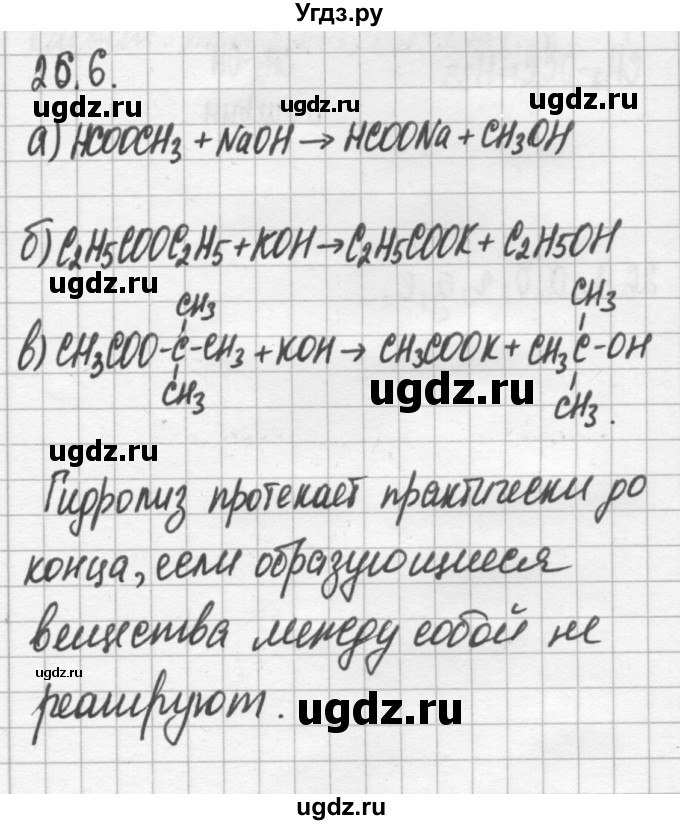 Угдз.ру
26.6.
ugdz.ru ugdz.ru ugdz.ru
а) HCOOCH3 + NaOH → HCOONa + CH3OH
б) C2H5COOC2H5 + KOH → C2H5COOK + C2H5OH
ugdz.ru
CH3 CH3
в) CH3COO-C-CH3 + KOH → CH3COOK + CH3C-OH
CH3 ugdz.ru CH3.
ugdz.ru
Гидролиз протекает практически до
конца, если образующиеся
вещества между собой не
ugdz.ru
реагируют. ugdz.ru
ugdz.ru